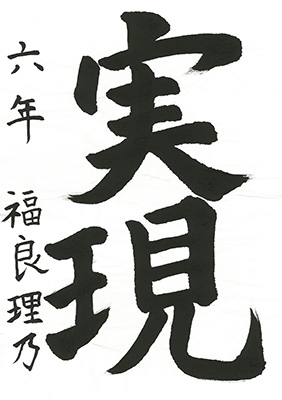 実現
六年 福良理乃